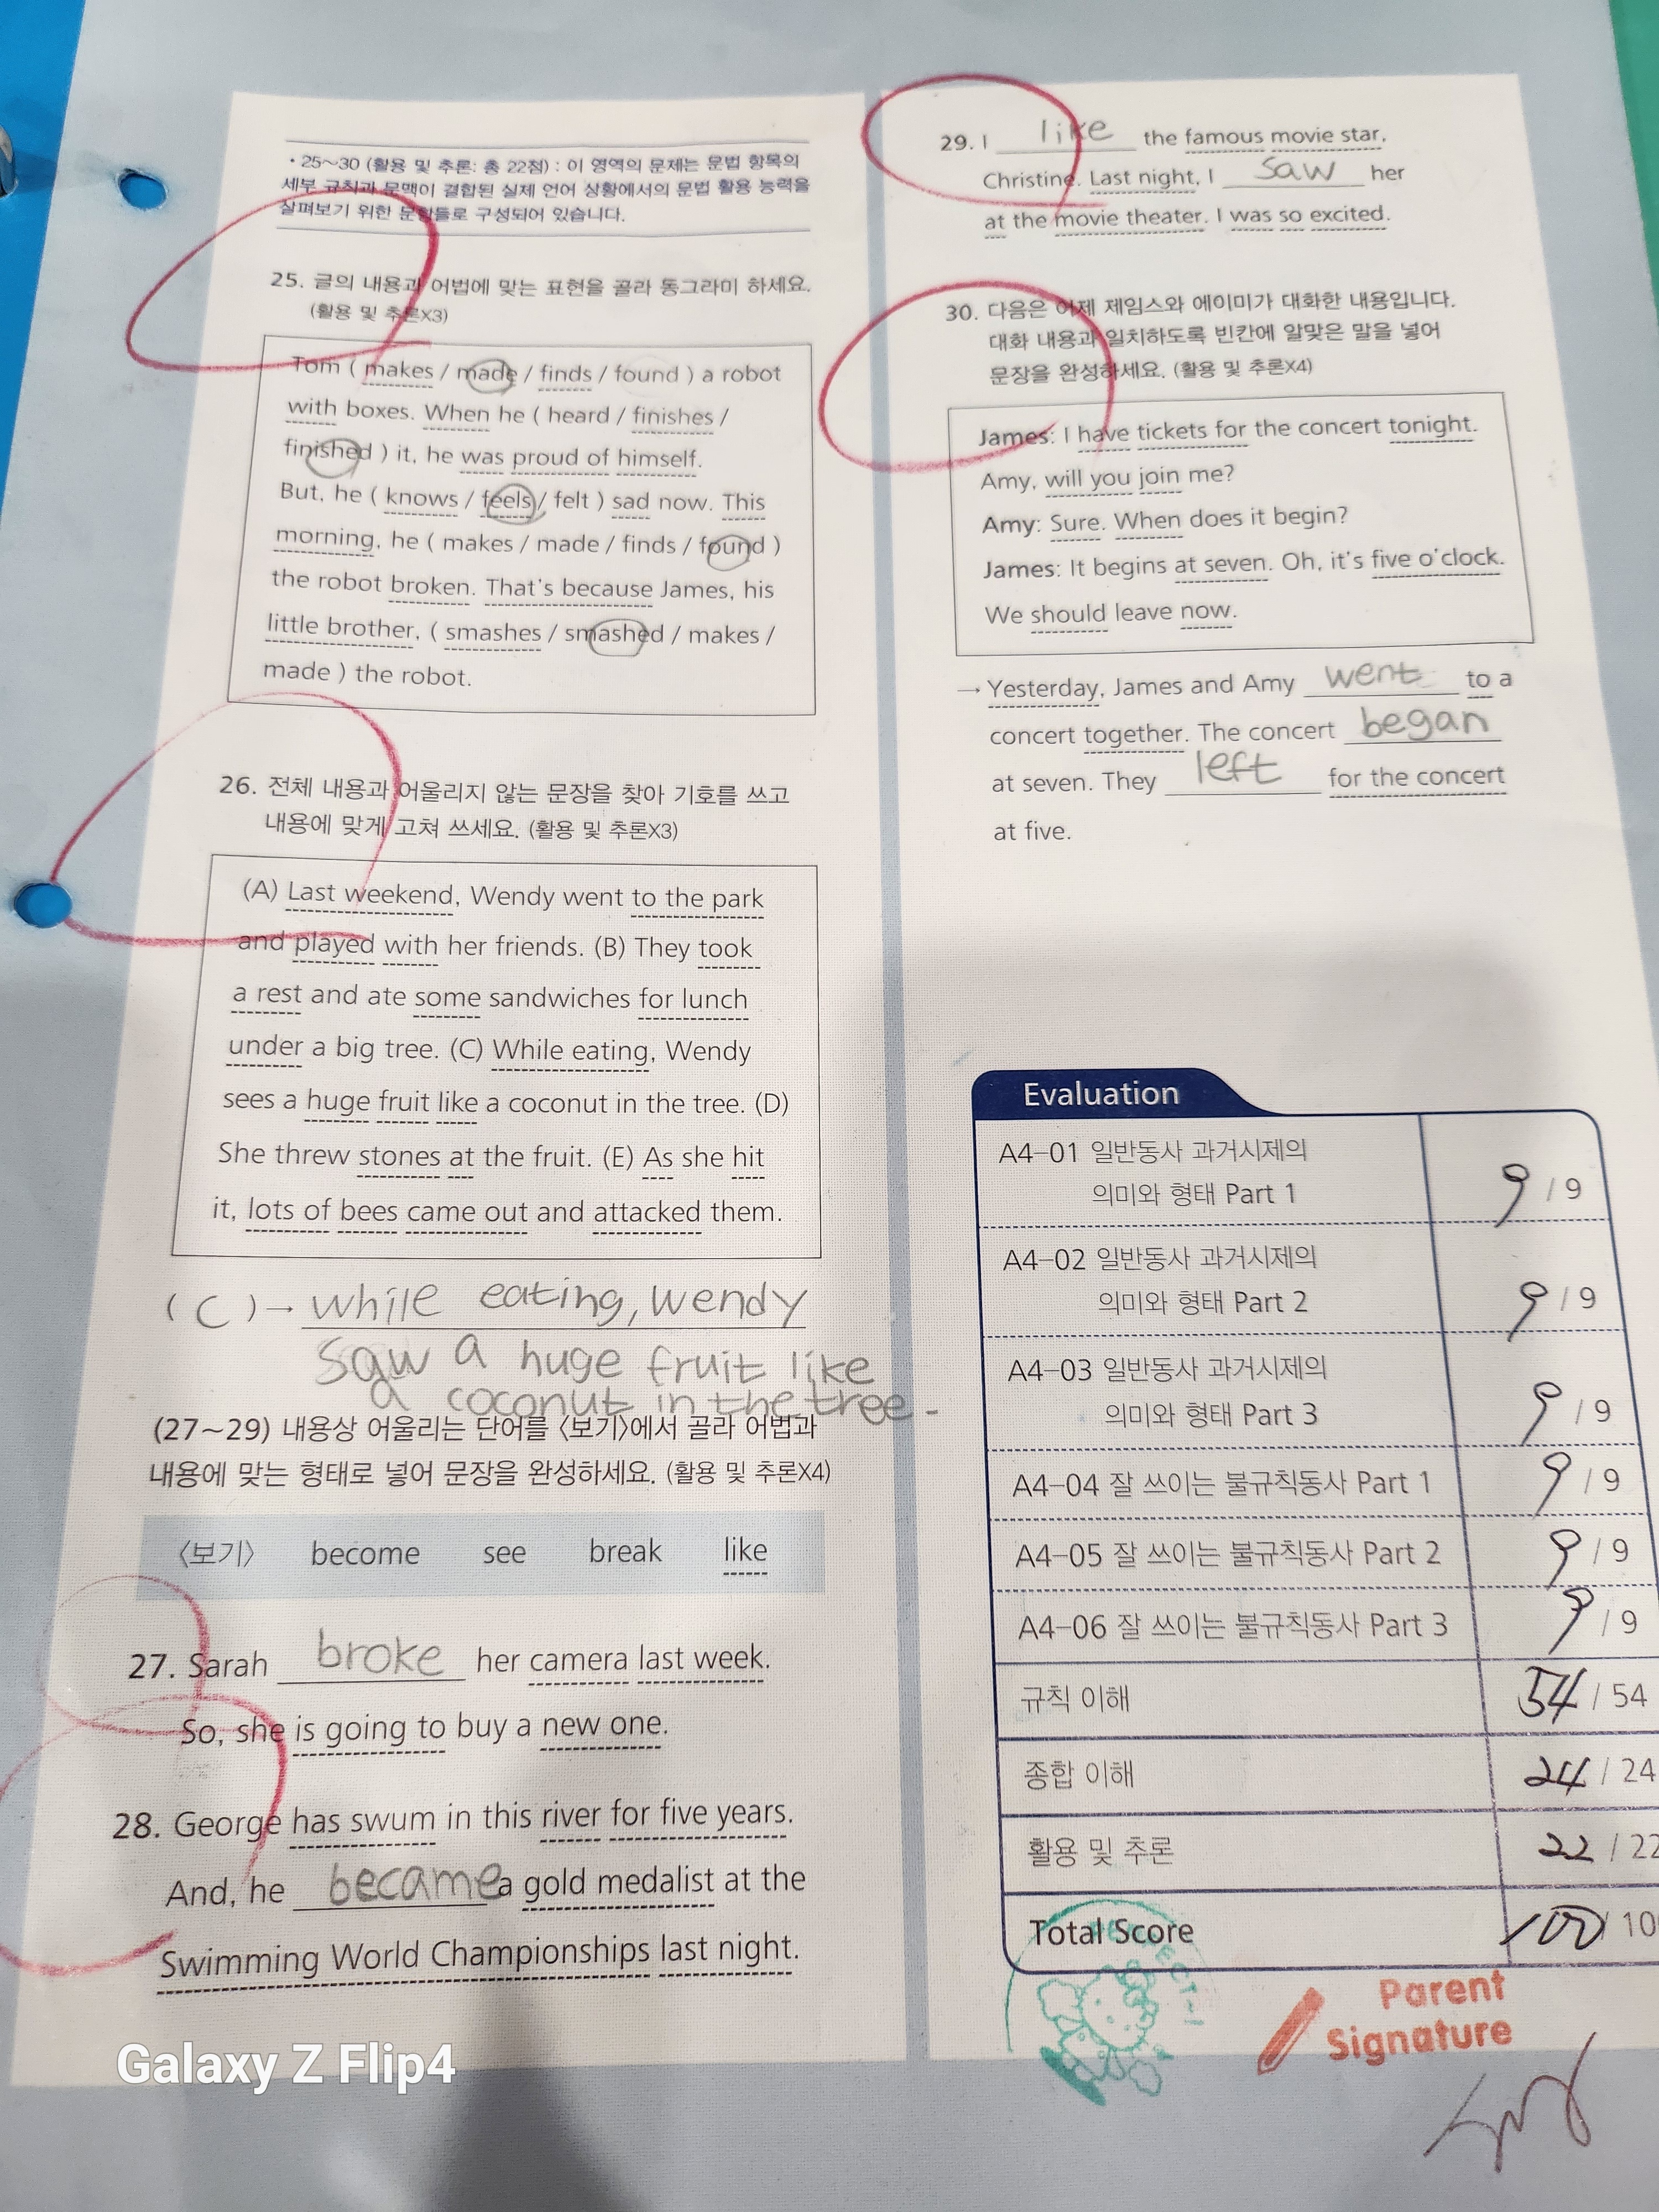 • 25~30 (활용 및 추론: 총 22점) : 이 영역의 문제는 문법 항목의
세부 규칙과 문맥이 결합된 실제 언어 상황에서의 문법 활용 능력을
살펴보기 위한 문항들로 구성되어 있습니다.
25. 글의 내용과 어법에 맞는 표현을 골라 동그라미 하세요.
(활용 및 추론X3)
Tom ( makes / made / finds / found ) a robot
with boxes. When he ( heard / finishes /
finished ) it, he was proud of himself.
But, he ( knows / feels / felt ) sad now. This
morning, he ( makes / made / finds / found )
the robot broken. That's because James, his
little brother, ( smashes / smashed / makes /
made ) the robot.
26. 전체 내용과 어울리지 않는 문장을 찾아 기호를 쓰고
내용에 맞게 고쳐 쓰세요. (활용 및 추론X3)
(A) Last weekend, Wendy went to the park
and played with her friends. (B) They took
a rest and ate some sandwiches for lunch
under a big tree. (C) While eating, Wendy
sees a huge fruit like a coconut in the tree. (D)
She threw stones at the fruit. (E) As she hit
it, lots of bees came out and attacked them.
( C ) → while eating, wendy
saw a huge fruit like
a coconut in the tree.
(27~29) 내용상 어울리는 단어를 〈보기〉에서 골라 어법과
내용에 맞는 형태로 넣어 문장을 완성하세요. (활용 및 추론X4)
〈보기〉 become see break like
27. Sarah broke her camera last week.
So, she is going to buy a new one.
28. George has swum in this river for five years.
And, he became a gold medalist at the
Swimming World Championships last night.
Galaxy Z Flip4
29. I like the famous movie star,
Christine. Last night, I saw her
at the movie theater. I was so excited.
30. 다음은 어제 제임스와 에이미가 대화한 내용입니다.
대화 내용과 일치하도록 빈칸에 알맞은 말을 넣어
문장을 완성하세요. (활용 및 추론X4)
James: I have tickets for the concert tonight.
Amy, will you join me?
Amy: Sure. When does it begin?
James: It begins at seven. Oh, it's five o'clock.
We should leave now.
→ Yesterday, James and Amy went to a
concert together. The concert began
at seven. They left for the concert
at five.
Evaluation
A4-01 일반동사 과거시제의
의미와 형태 Part 1 9 / 9
A4-02 일반동사 과거시제의
의미와 형태 Part 2 9 / 9
A4-03 일반동사 과거시제의
의미와 형태 Part 3 9 / 9
A4-04 잘 쓰이는 불규칙동사 Part 1 9 / 9
A4-05 잘 쓰이는 불규칙동사 Part 2 9 / 9
A4-06 잘 쓰이는 불규칙동사 Part 3 9 / 9
규칙 이해 54 / 54
종합 이해 24 / 24
활용 및 추론 22 / 22
Total Score 100 / 10
Parent
Signature